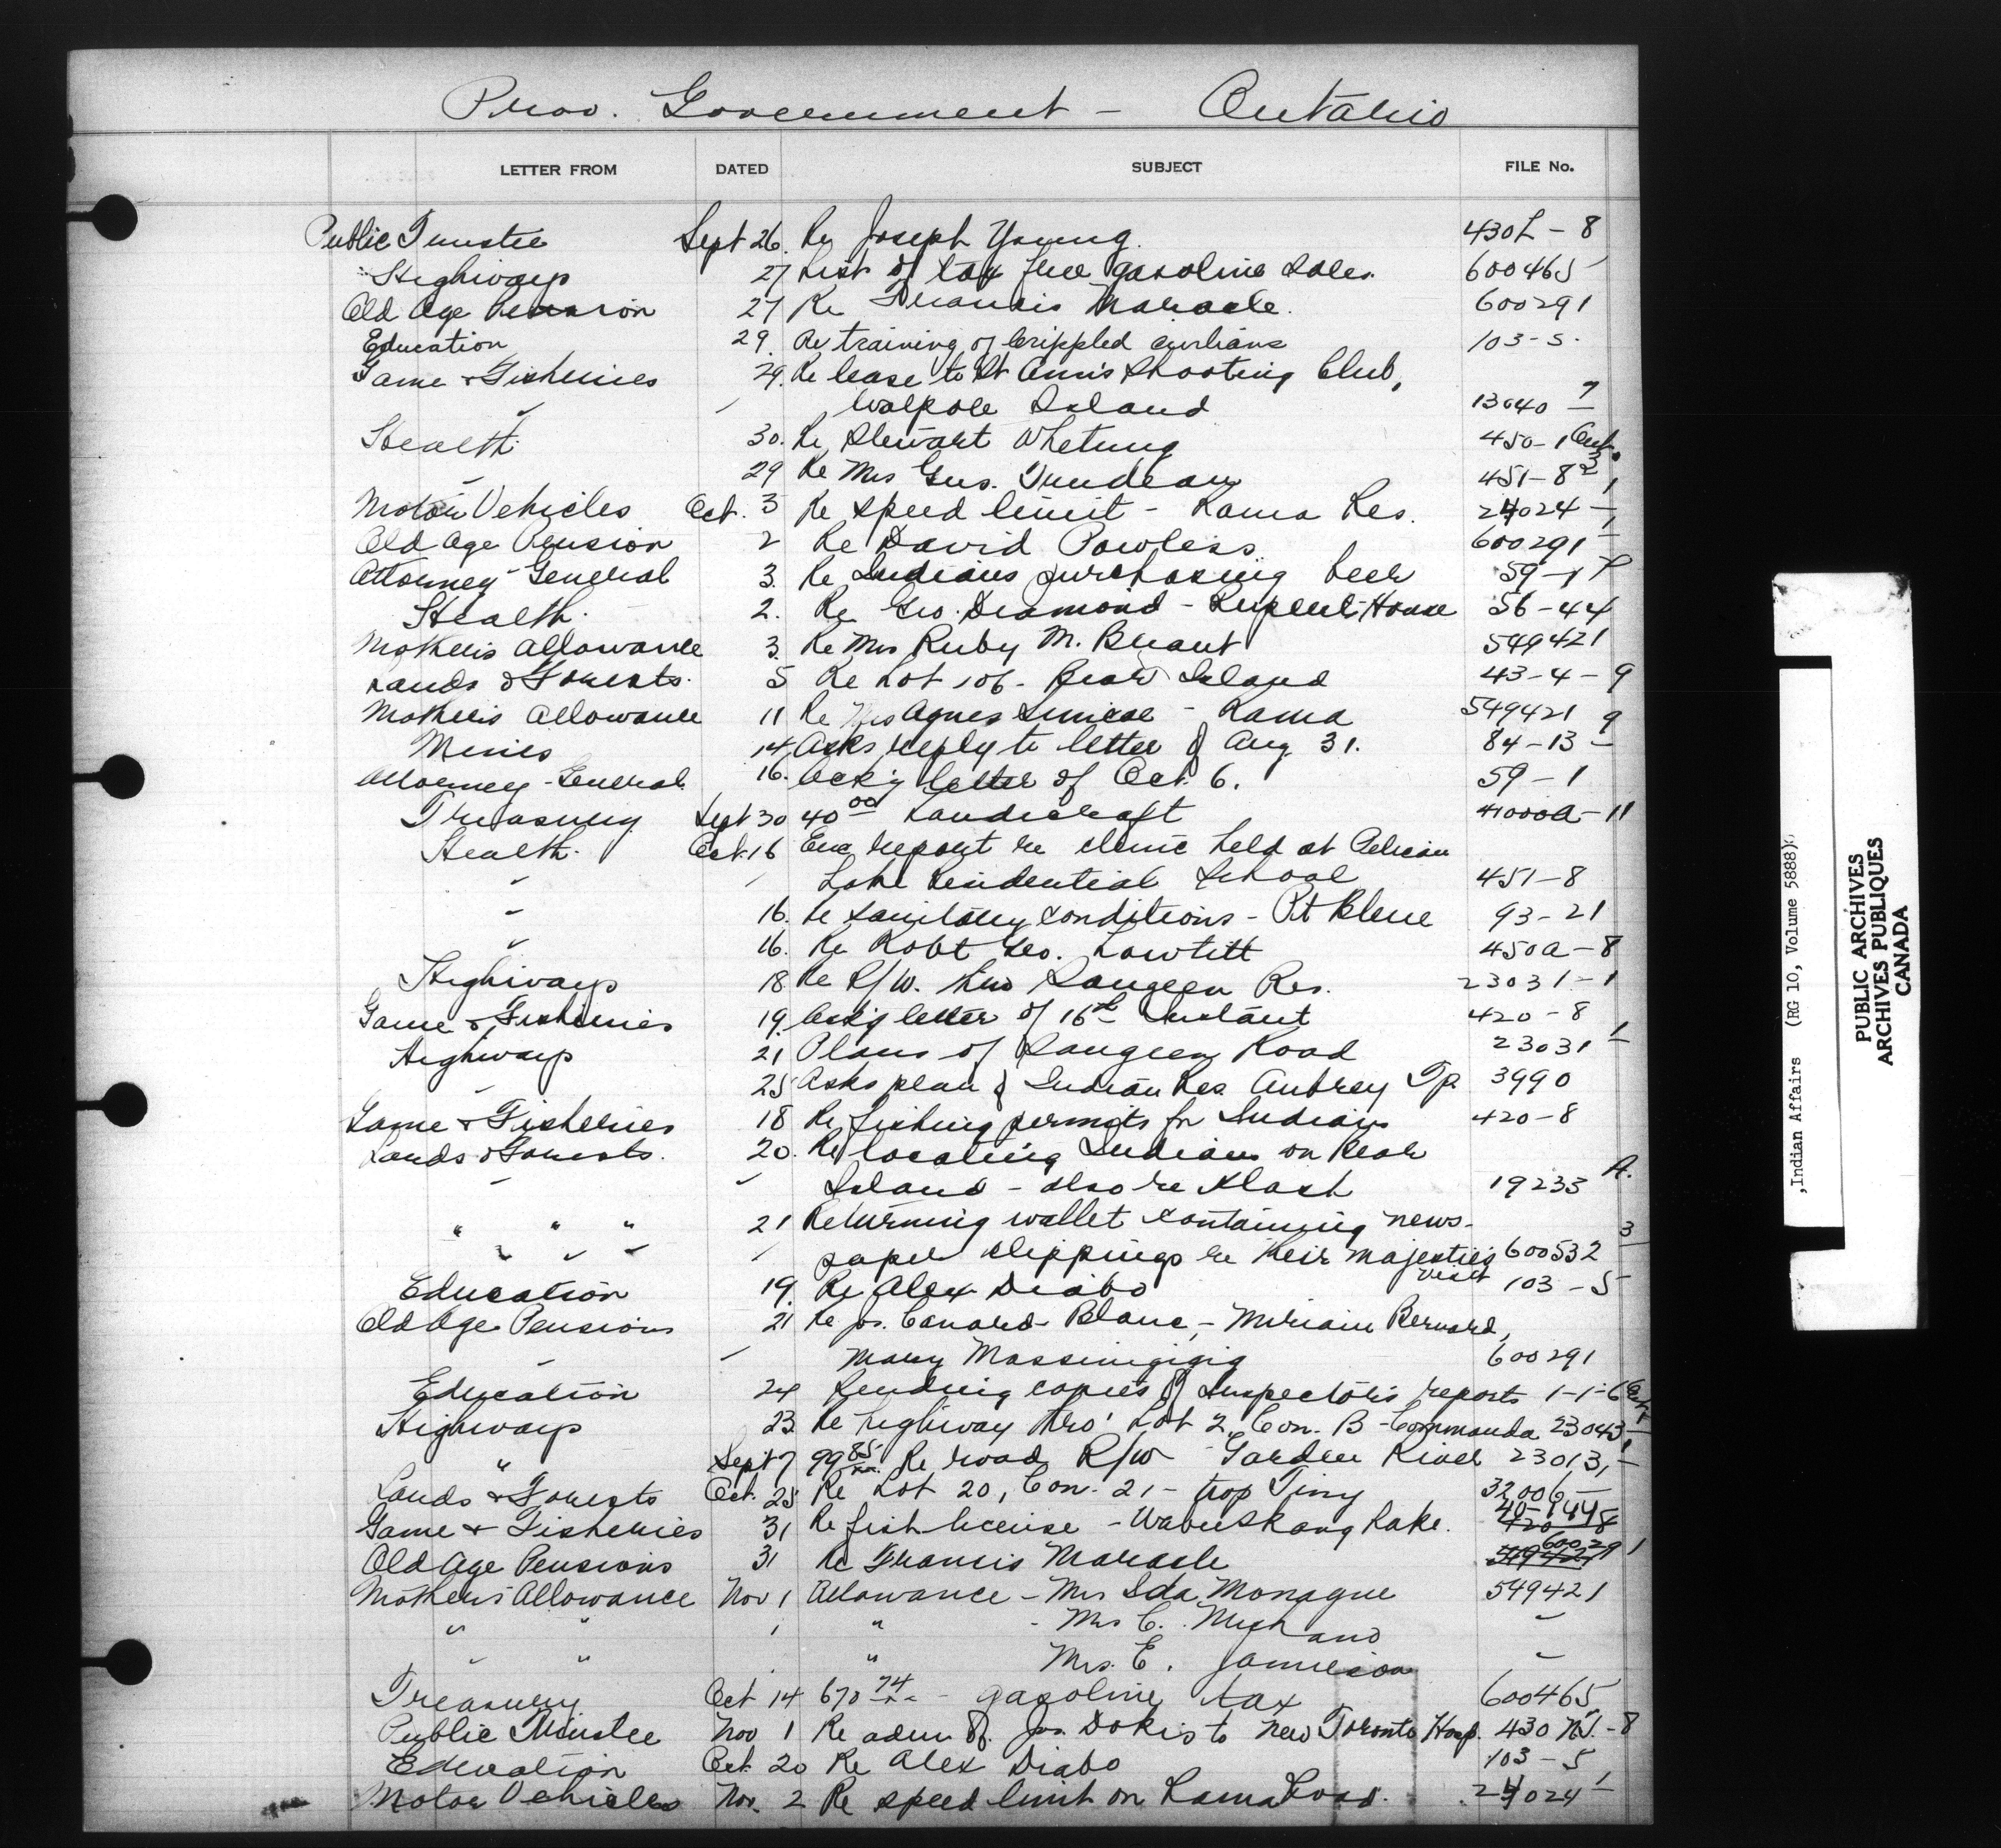 Prov. Government - Ontario
LETTER FROM DATED SUBJECT FILE No.
Public Trustee Sept 26. Re Joseph Young. 430L - 8
Highways 27 List of tax free gasoline sales. 600465
Old Age Pension 27 Re Francis Maracle. 600291
Education 29. Re training of crippled Indians 103-5.
Game & Fisheries 29. Re lease to St Ann's Shooting Club,
" " Walpole Island 13040 7
Health. 30. Re Stewart Whetung 450-1 Ont.
" 29 Re Mrs Gus. 451-8
Motor Vehicles Oct. 3 Re speed limit - Rama Res. 24024 - 1
Old Age Pension 2 Re David Powless 600291
Attorney General 3. Re Indians purchasing beer 59-1
Health. 2. Re Geo. Diamond - Rupert House 56-44
Mothers Allowance 3. Re Mrs Ruby M. Brant 549421
Lands & Forests. 5 Re Lot 106 - Bear Island 43-4-9
Mothers Allowance 11 Re Mrs Agnes Simcoe - Rama 549421
Mines 14 Asks reply to letter of Aug 31. 84-13 - 9
Attorney-General. 16. Ack'g letter of Oct. 6. 59-1
Treasury Sept 30 40 00 Handicraft 41000A-11
Health. Oct. 16 Enc report re clinic held at Pelican
" " Lake Residential School 451-8
" 16. Re sanitary conditions - Pt Bleue 93-21
" 16. Re Robt Geo. 450A-8
Highways 18 Re R/W. thro Saugeen Res. 23031-1
Game & Fisheries 19. Ack'g letter of 16th Instant 420-8
Highways 21 Plans of Saugeen Road 23031 - 1
" 25 Asks plan of Indian Res. Aubrey Tp. 3990
Game & Fisheries 18 Re fishing permits for Indians 420-8
Lands & Forests. 20. Re locating Indians on Bear
" " Island - also re Nash 19233 A.
" " " 21 Returning wallet containing news-
" " " " paper clippings re their Majesties visit 600532 3
Education 19. Re Alex Diabo 103-5
Old Age Pensions 21 Re Jos. Canard-Blanc, - Miriam Bernard,
" " Mary Massinigigig 600291
Education 24 Sending copies of Inspector's reports 1-1-6
Highways 23. Re highway thro' Lot 2, Con. B - Commanda 23043 - 1
" Sept 7 99 85 Re road R/W - Garden River 23013, -
Lands & Forests Oct. 25 Re Lot 20, Con. 21 - twp Tiny 32006 -
Game & Fisheries 31 Re fish license - Wabuskang Lake.
Old Age Pensions 31 Re Francis Maracle 600291
Mothers' Allowance Nov 1 Allowance - Mrs Ida Monague 549421
" " " " - Mrs C. Michano "
" " " " Mrs. E. Jamieson "
Treasury Oct 14 670 74 - gasoline tax 600465
Public Trustee Nov 1 Re adm. of Jos. Dokis to New Toronto Hosp. 430 N.S.-8
Education Oct. 20 Re Alex Diabo 103-5
Motor Vehicles Nov. 2 Re speed limit on Rama Road. 24024 - 1
Indian Affairs (RG 10, Volume 5888)
PUBLIC ARCHIVES
ARCHIVES PUBLIQUES
CANADA